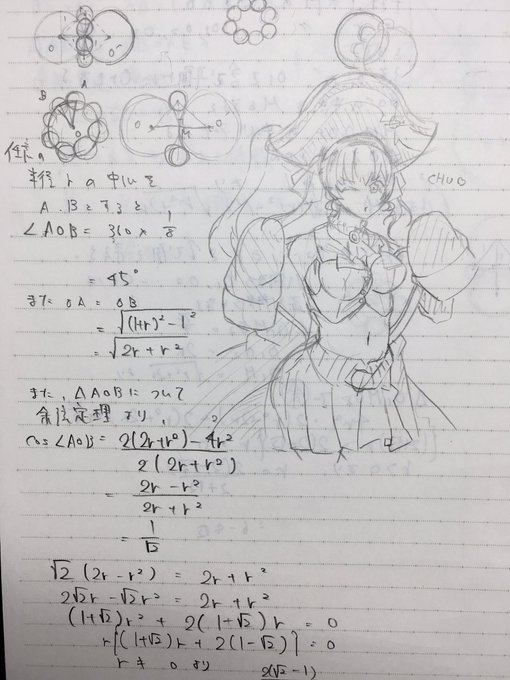 B
A
半径rの中心を
A, Bとすると
∠AOB = 360 × 1/8
= 45°
また OA = OB
= √((1+r)² - 1²)
= √(2r + r²)
また, △AOBについて
余弦定理より,
cos∠AOB = (2(2r+r²) - 4r²) / (2(2r+r²))
= (2r - r²) / (2r + r²)
= 1/√2
√2(2r - r²) = 2r + r²
2√2r - √2r² = 2r + r²
(1+√2)r² + 2(1-√2)r = 0
r{(1+√2)r + 2(1-√2)} = 0
r ≠ 0 より
2(√2-1)